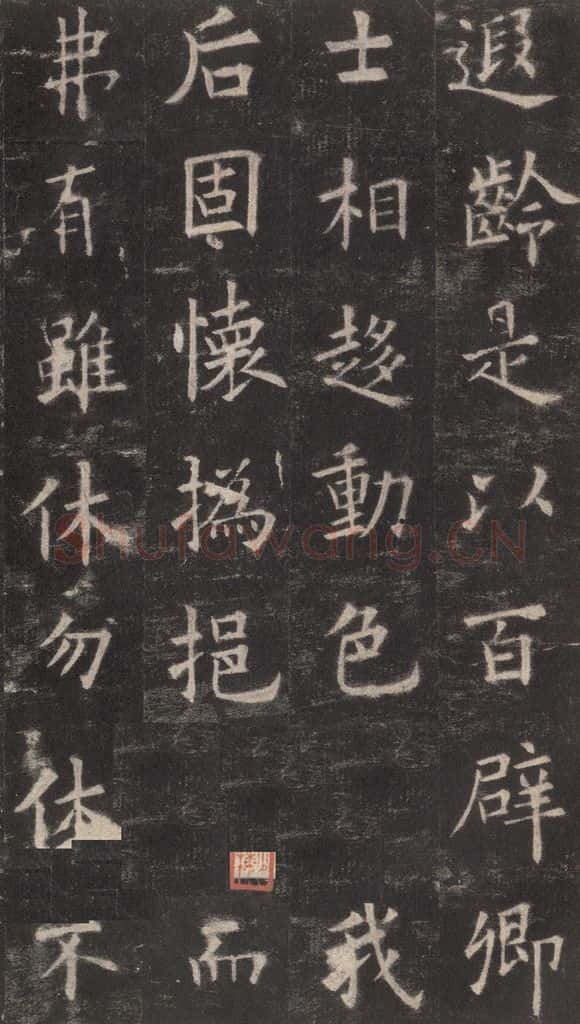 遐齡是以百辟卿
士相趍動色我
后固懷撝挹而
弗有雖休勿休不
Shufawang.CN